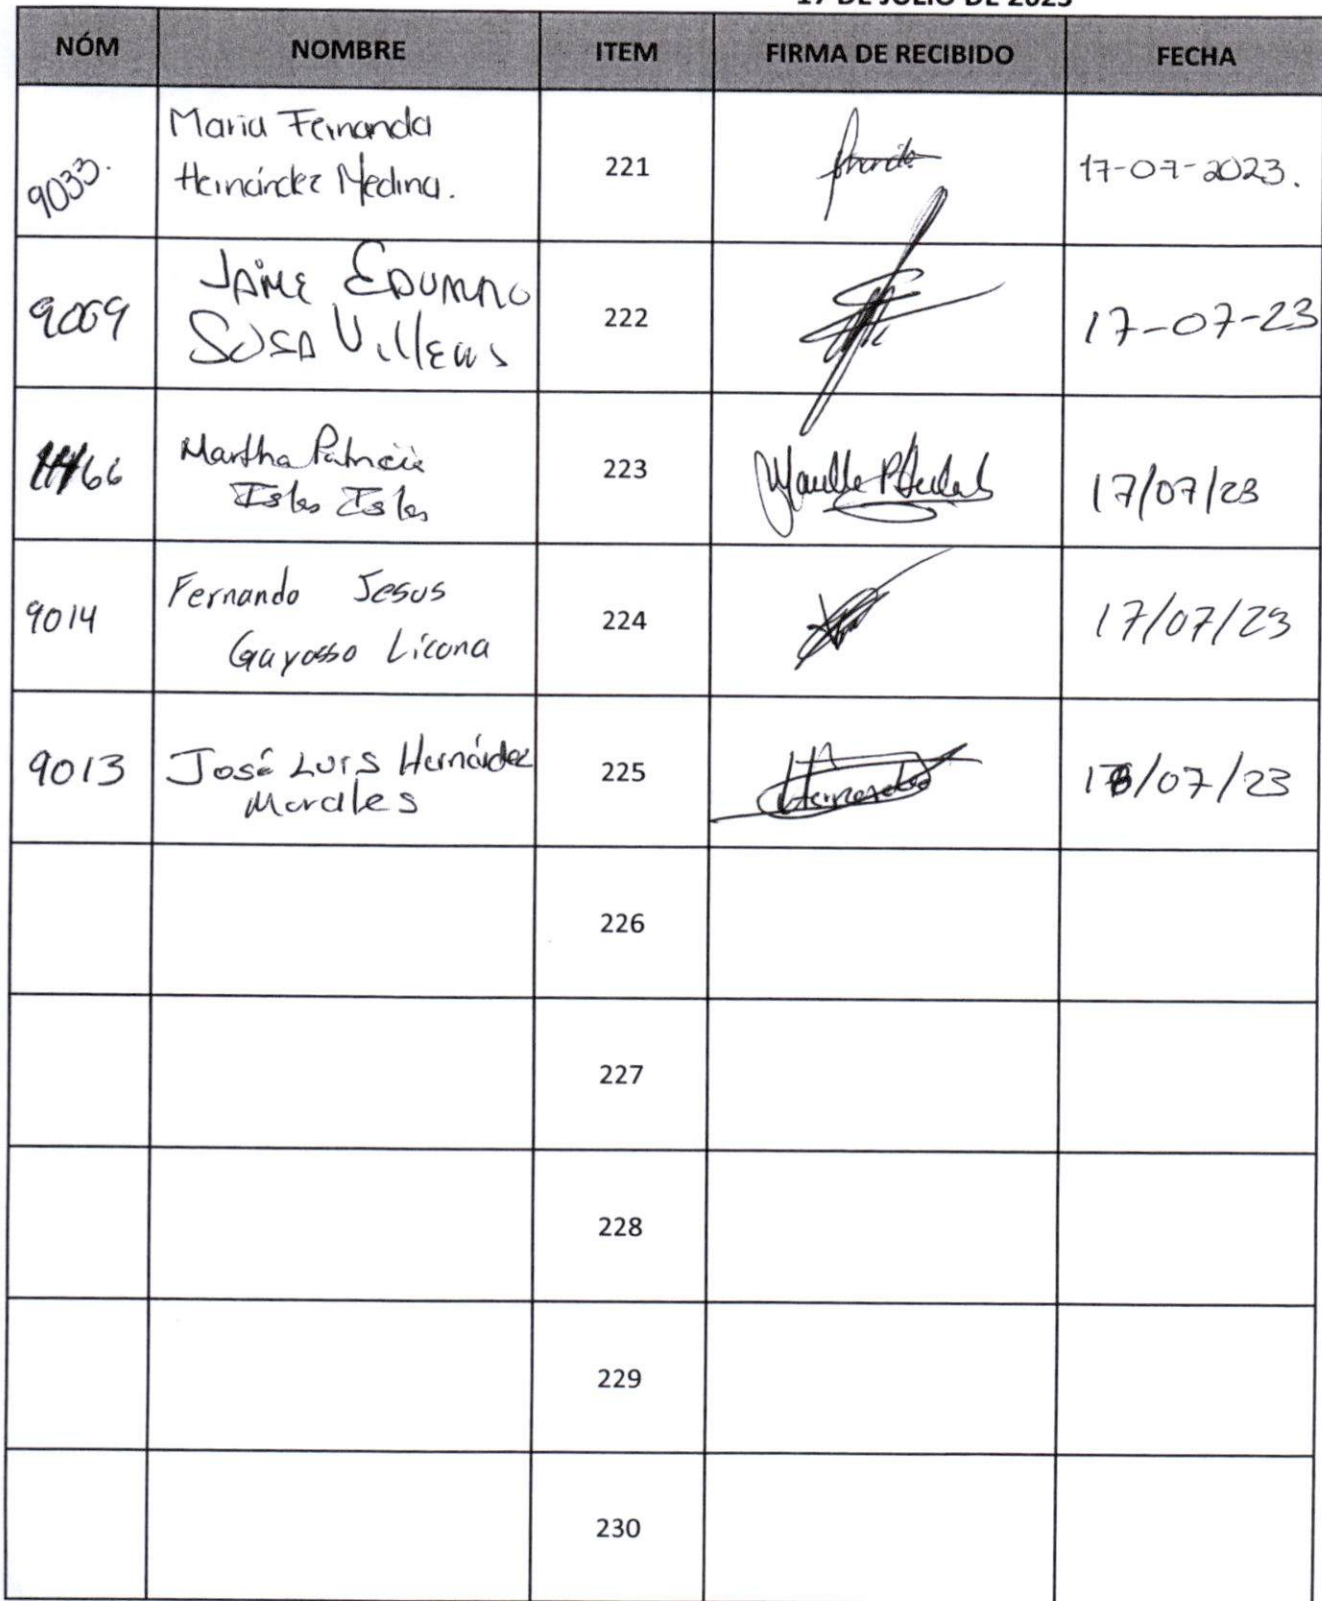 17 DE JULIO DE 2023
NÓM NOMBRE ITEM FIRMA DE RECIBIDO FECHA
9033. Maria Fernanda
Hernández Medina. 221 17-07-2023.
9069 JAIME EDUARDO
SOSA Villegas 222 17-07-23
66 Martha Patricia
Islas Islas 223 17/07/23
9014 Fernando Jesus
Gayosso Licona 224 17/07/23
9013 José Luis Hernández
Morales 225 Hernandez /07/23
226
227
228
229
230